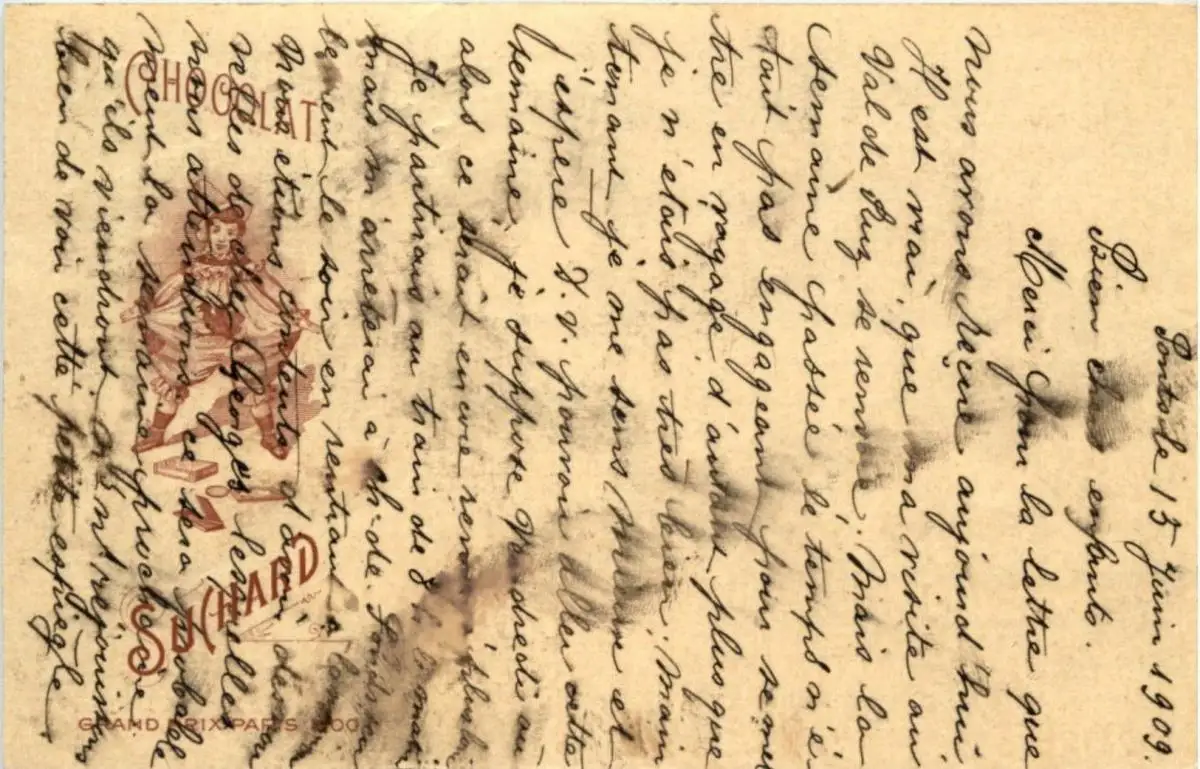 Pontole 15 Juin 1909.
Bien chers enfants.
Merci pour la lettre que
nous avons reçue aujourd'hui
Il est vrai, que ma visite au
Val de Ruz se renvoie. Mais la
semaine passée le temps n'é
tait pas engageant pour se met
tre en voyage d'autant plus que
je n'étais pas très bien; main
tenant je me sens mieux et
j'espère D. v. pouvoir aller cette
semaine, je suppose Vendredi ou
alors ce serait encore renvoyé
Je partirais au train de
mais m'arrêterai à ch. de
le soir en rentrant
Nous étions contents d'avoir des
nouvelles de chez Georges
nous attendions, ce sera probable
ment la semaine prochaine
qu'ils viendront,
bien de voir cette petite espiègle
CHOCOLAT
SUCHARD
GRAND PRIX PARIS 1900